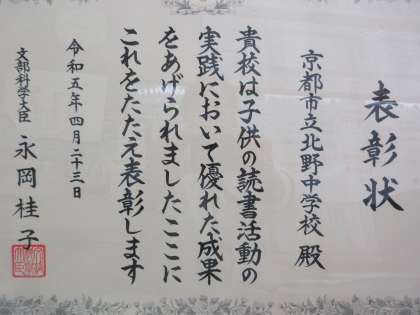 表彰状
京都市立北野中学校 殿
貴校は子供の読書活動の
実践において優れた成果
をあげられましたここに
これをたたえ表彰します
令和五年四月二十三日
文部科学大臣 永岡桂子